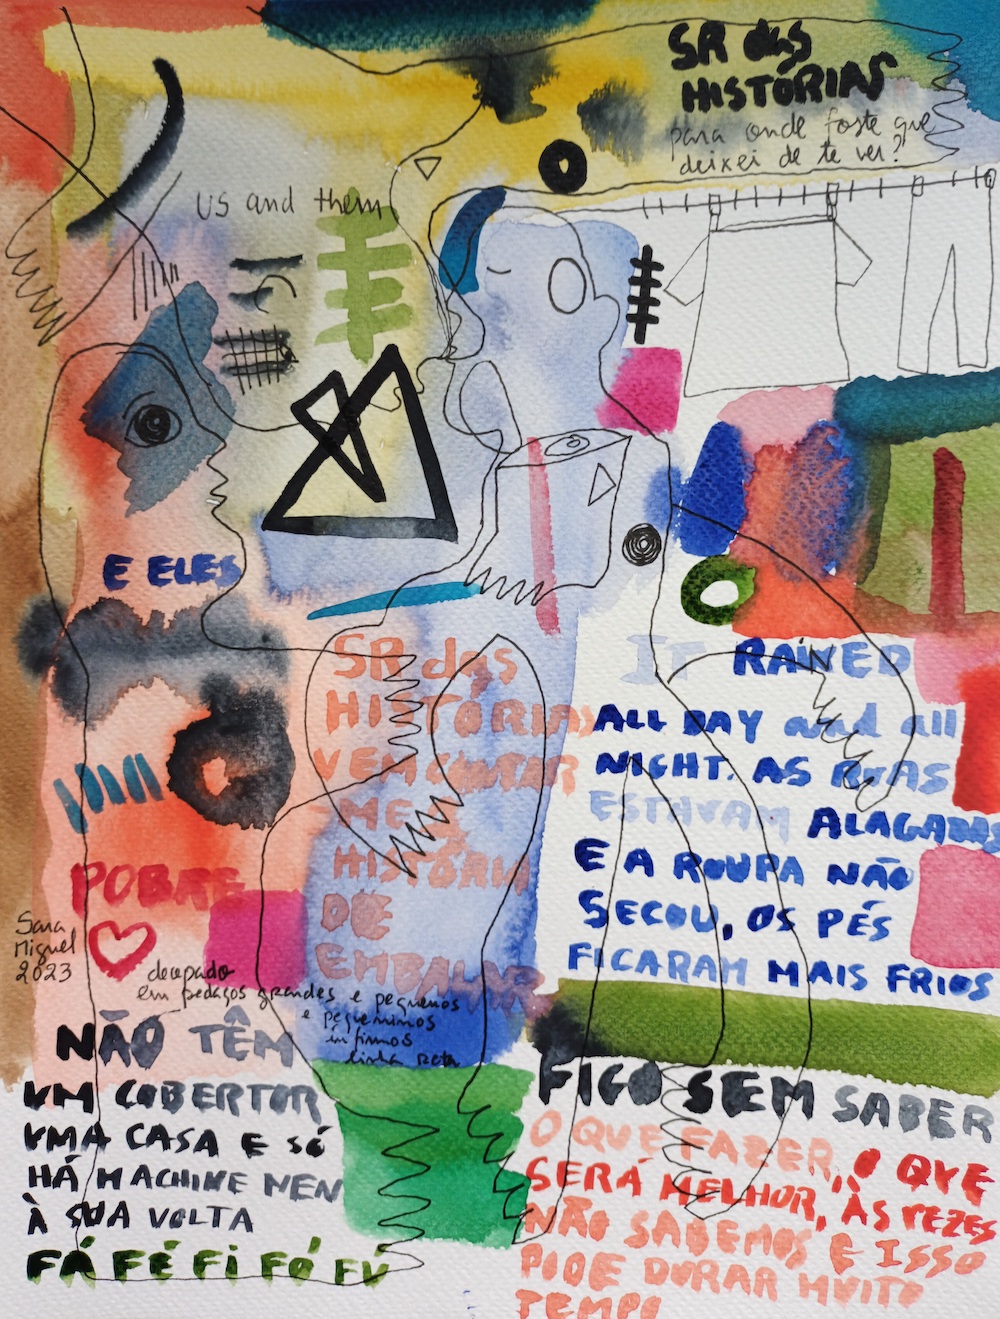 SR das
HISTÓRIAS
para onde foste que
deixei de te ver?
us and them
E ELES
SR das
HISTÓRIAS
VEM CONTAR
ME A
HISTÓRIA
DE
EMBALAR
IT RAINED
ALL DAY and all
NIGHT. AS RUAS
ESTAVAM ALAGADAS
E A ROUPA NÃO
SECOU, OS PÉS
FICARAM MAIS FRIOS
POBRE
Sara
Miguel
2023
decepado
em pedaços grandes e pequenos
e pequeninos
ínfimos
linha reta
NÃO TÊM
UM COBERTOR
UMA CASA E SÓ
HÁ MACHINE MEN
À SUA VOLTA
FÁ FÉ FI FÓ FU
FICO SEM SABER
O QUE FAZER, O QUE
SERÁ MELHOR, ÀS VEZES
NÃO SABEMOS E ISSO
PODE DURAR MUITO
TEMPO